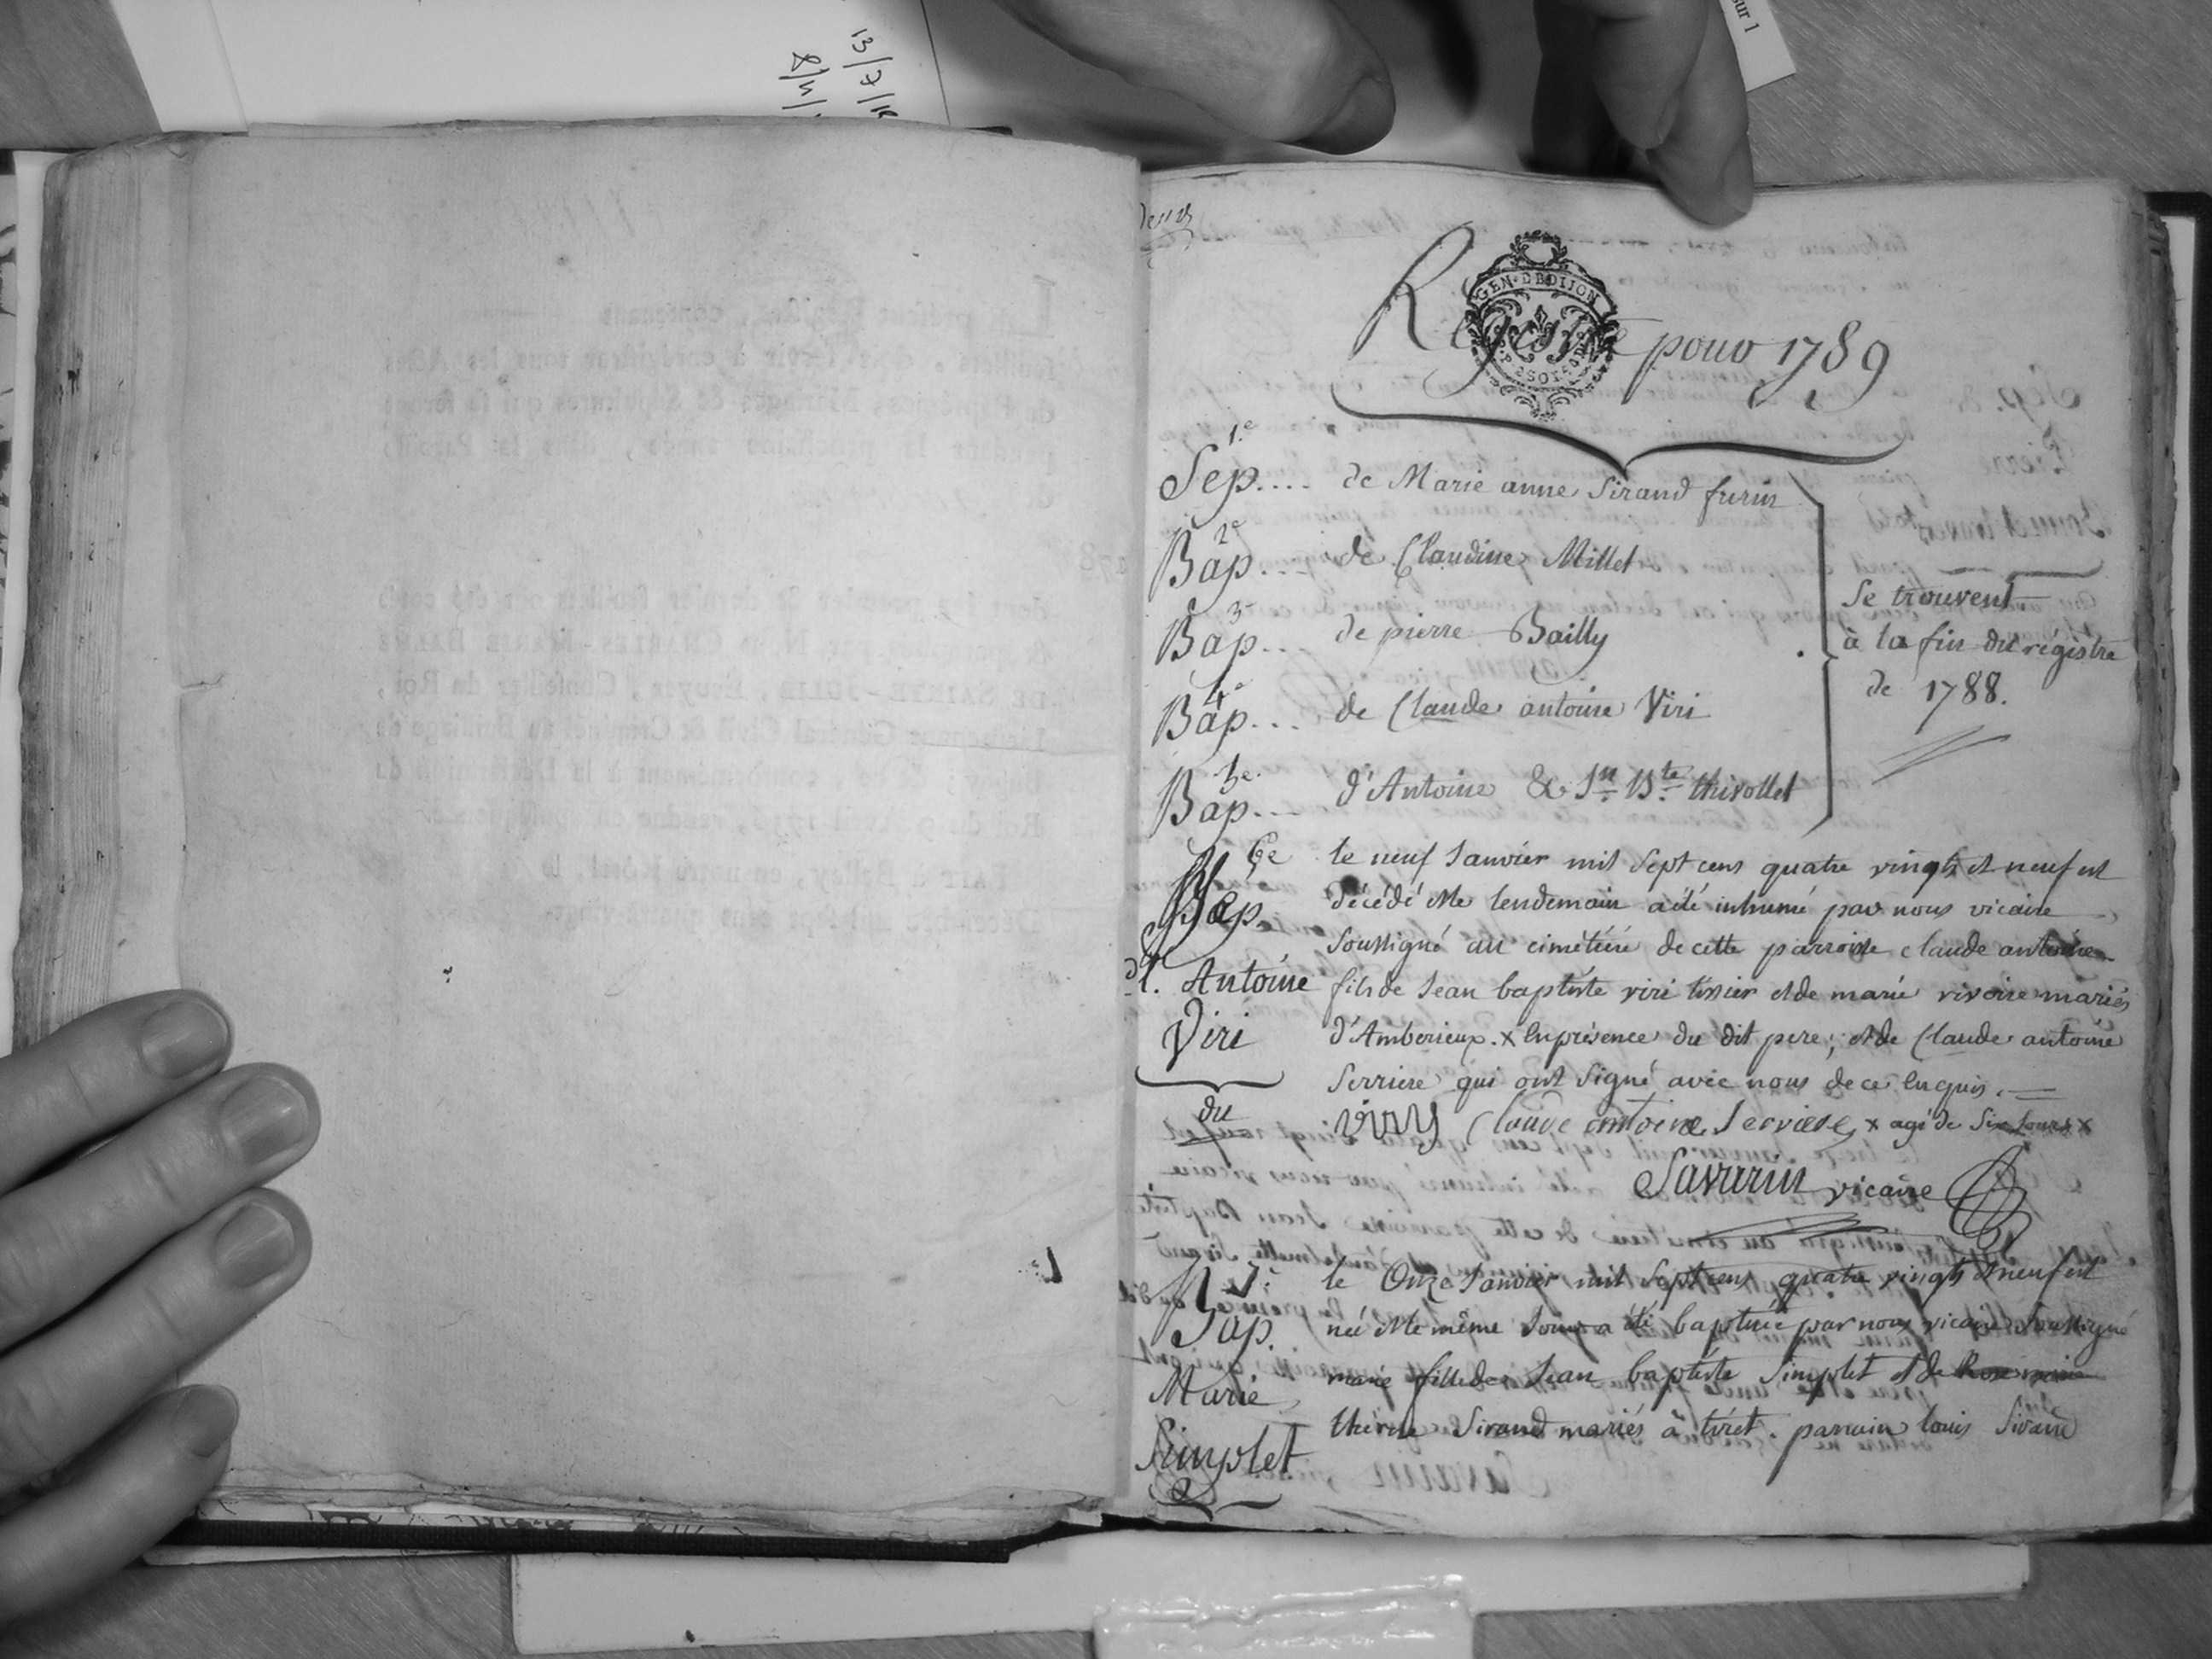 13/7/1
8/4/
sur 1
deux
Registre pour 1789
GEN·DE DIJON
1.e
Sep.... de Marie anne Sirand furin
2e
Bap... de Claudine Millet
3e
Bap... de pierre Bailly
4e
Bap... de Claude antoine Viri
5e
Bap... d'Antoine & Jn Bte thivollet
Se trouvent
à la fin du régistre
de 1788.
6e
Sep.
Cl. Antoine
Viri
du
le neuf Janvier mil Sept cens quatre vingts et neuf est
décédé et le lendemain a été inhumé par nous vicaire
Soussigné au cimétiére de cette parroisse claude antoine
fils de Jean baptiste viri tissier et de marie rivoire mariés
d'Amberieux. x En présence du dit pere, et de Claude antoine
Serriere qui ont signé avec nous de ce Enquis.
viry Claude antoine Serriere x agé de Six Jours x
Savarin vicaire
7e
Bap.
Marie
Simplet
le Onze Janvier mil Sept cens quatre vingts et neuf est
née et le même Jour a été baptisée par nous vicaire Soussigné
marie fille de Jean baptiste Simplet et de
thérese Sirand mariés à tiret. parrain louis Sirand